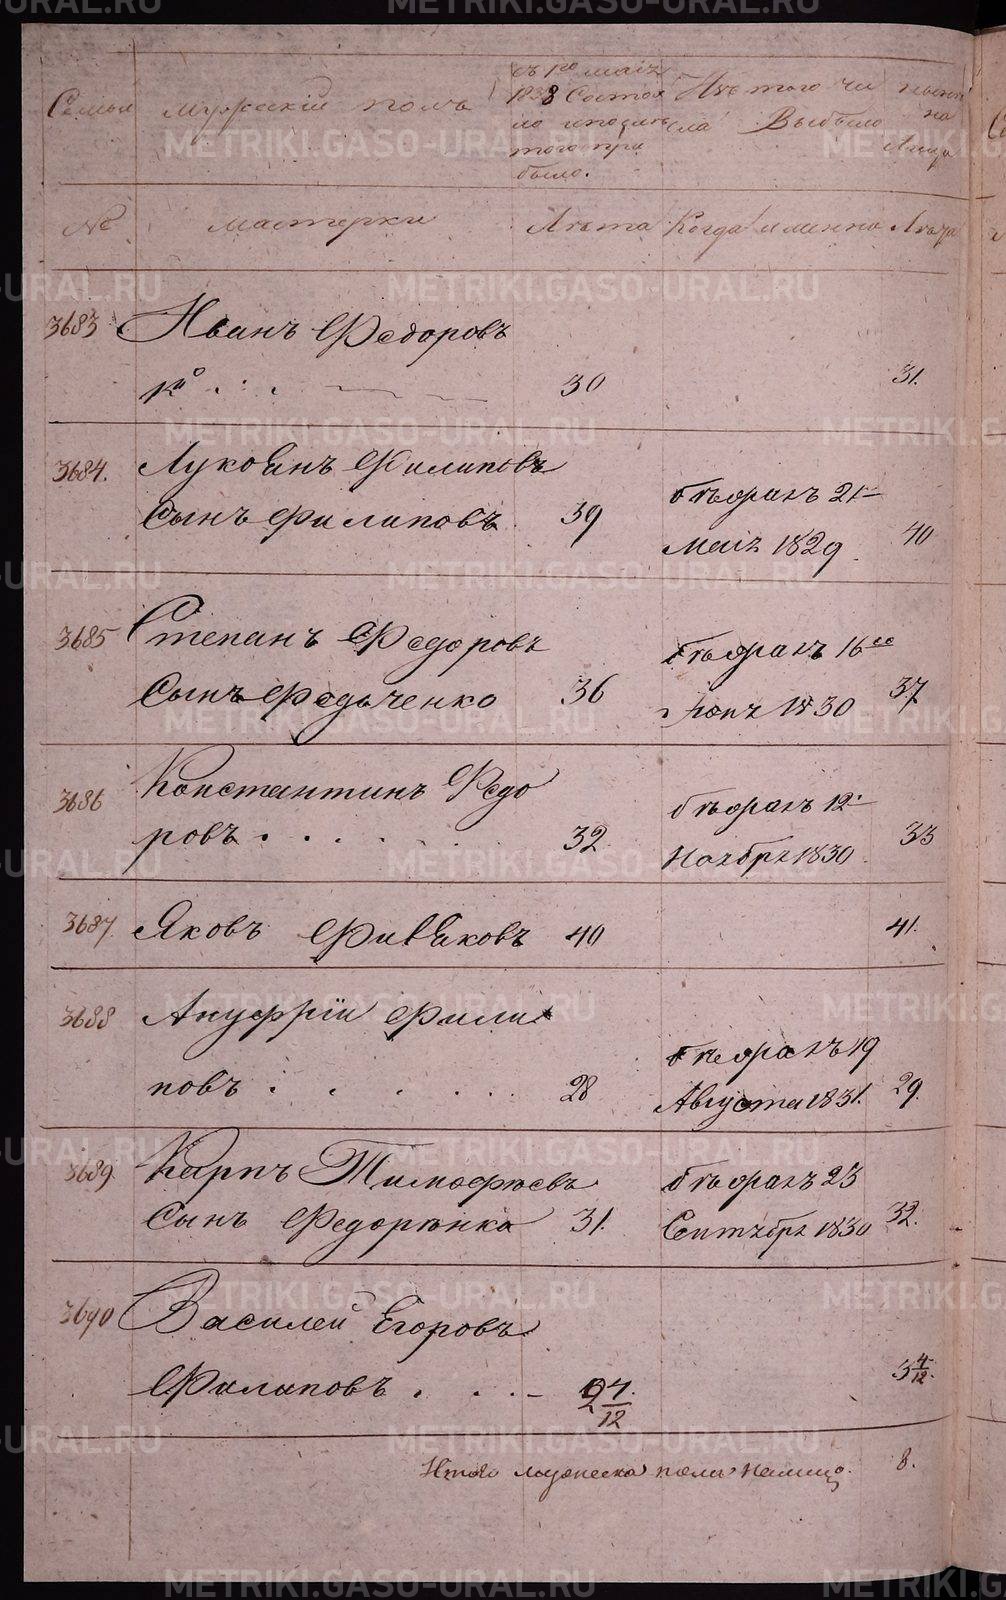 Семьи
Мужескій полъ
съ 1го маія
1838 Состоя
ло и послѣ
того при
было.
Изъ того чи
сла Выбыло
нынѣ
на
лицо
№
мастерки
Лѣта
Когда именно
Лѣта
3683
Иванъ Федоровъ
30
31.
3684.
Лукоянъ Филиповъ
Сынъ Филиповъ
39
бѣжалъ 21
Маія 1829
40
3685
Степанъ Федоровъ
Сынъ Федьченко
36
бѣжалъ 16го
1830
37
3686
Константинъ Федо
ровъ
32
бѣжалъ 12
Ноября 1830
33
3687
Яковъ
40
41.
3688
Ануфрій Фили
повъ
28
бѣжалъ 19
Августа 1831.
29.
3689
Карпъ Тимофѣевъ
Сынъ Федорѣнко
31.
бѣжалъ 23
Сентября 1830
32.
3690
Василей Егоровъ
Филиповъ
2 4/12
3 4/12
Итого мужеска полъ налицо.
8.
METRIKI.GASO-URAL.RU